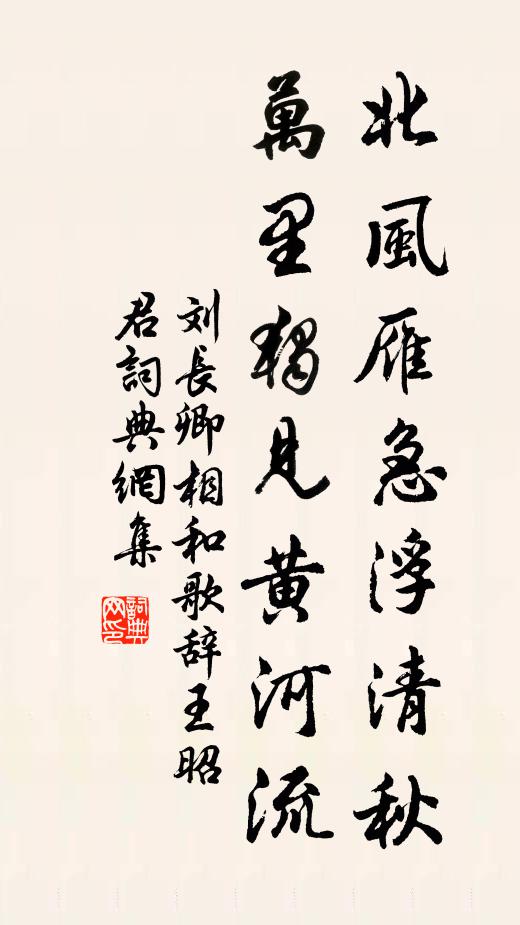 北風雁急浮清秋
萬里獨見黄河流
刘長卿相和歌辞王昭
君詞典網集
詞典
网印